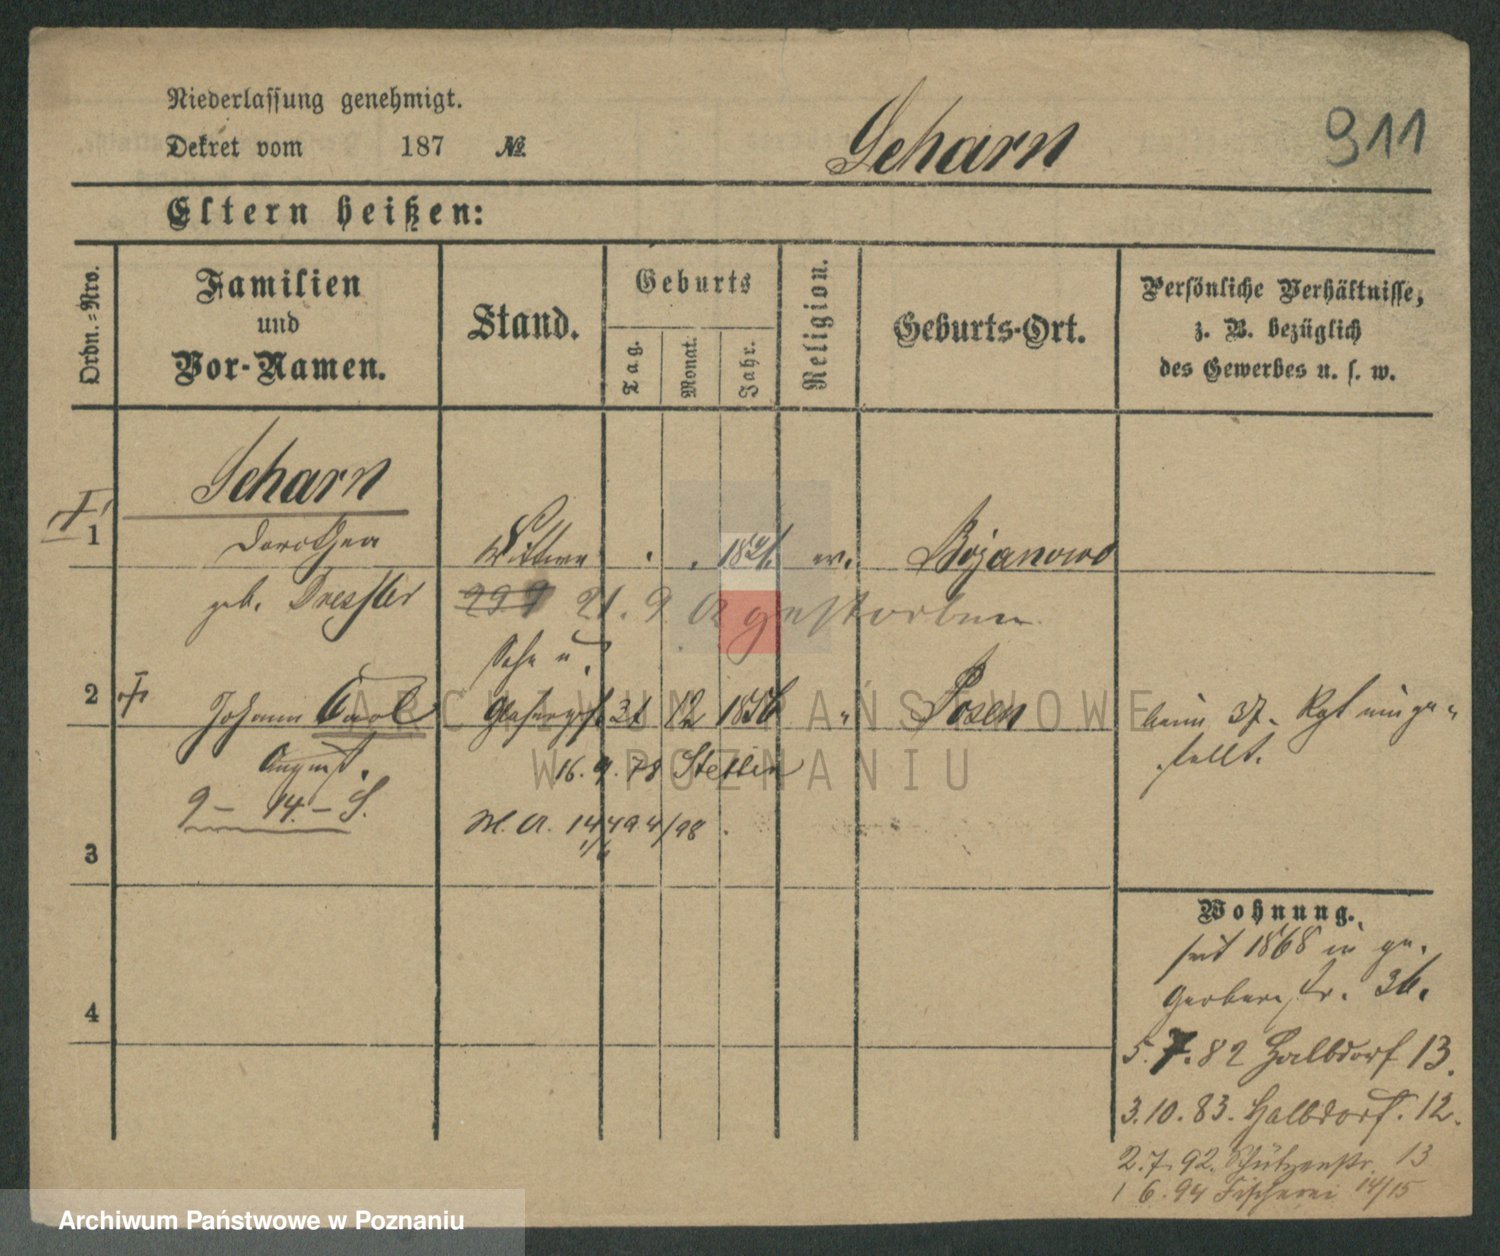 Niederlassung genehmigt.
Dekret vom 187 №
Scharn
911
Eltern heißen:
Ordn.=Nro.
Familien
und
Vor-Namen.
Stand.
Geburts
Tag.
Monat.
Jahr.
Religion.
Geburts-Ort.
Persönliche Verhältnisse,
z. B. bezüglich
des Gewerbes u. s. w.
Scharn
1 Dorothea Wittwe ev. Bojanowo
geb. Dressler 21. 9. gestorben
Sohn u.
2 Johann Carl 31 12 1856 " Posen beim 37. Rgt einge-
stellt.
August. 16. 9. 78 Stettin
9 - 14. - S.
M. A. 14494/98
3
Wohnung.
seit 1868 in gr.
Gerberstr. 36.
4
5. 7. 82 Halbdorf 13.
3. 10. 83. Halbdorf. 12.
2. 7. 92. Schützenstr. 13
1 6. 94 Fischerei 14/15
ARCHIWUM PAŃSTWOWE
W POZNANIU
Archiwum Państwowe w Poznaniu